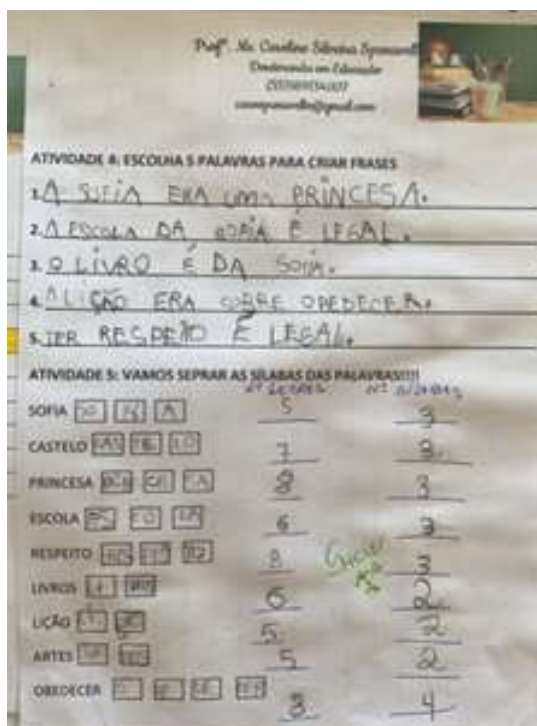 Profª. Ms. Caroline Silveira
Doutoranda em Educação
ATIVIDADE 4: ESCOLHA 5 PALAVRAS PARA CRIAR FRASES
1. A SOFIA ERA UMA PRINCESA.
2. A ESCOLA DA SOFIA É LEGAL.
3. O LIVRO É DA SOFIA.
4. A LIÇÃO ERA SOBRE OBEDECER.
5. TER RESPEITO É LEGAL.
ATIVIDADE 5: VAMOS SEPRAR AS SÍLABAS DAS PALAVRAS!!!!
Nº LETRAS Nº SÍLABAS
SOFIA SO FI A 5 3
CASTELO CAS TE LO 7 3
PRINCESA PRIN CE SA 8 3
ESCOLA ES CO LA 6 3
RESPEITO 8 3
LIVROS 6 2
LIÇÃO 5 2
ARTES 5 2
OBEDECER 8 4